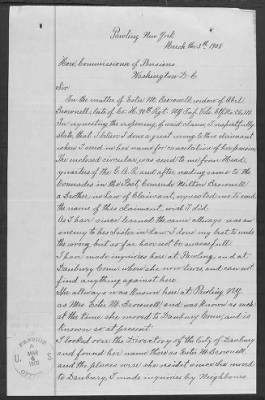 Pawling New York
March the 3th 1908
Hon. Commissioner of Pensions
Washington D.C.
Sir
In the matter of Ester M. Brownell widow of Abel
Brownell, late of Co. H. 19th Regt. NY
In requesting the opening of said claim I respectfully
state, that I believe I done a great wrong to this claimant
when I send in her name for cancelation of her pension
The enclosed circular, was send to me from Head-
quarters of the G.A.R. and after reading same to the
Comrades in the Post, Comrade Milton Brownell
a Brother in law of Claimant, requested me to send
the name of this claimant, wich I did.
As I have since learned the same allways was an
enemy to his Sister in law I done my best to undo
the wrong but so far have not be successful.
I have made inquiries here at Pawling, and at
Danbury Conn where she now lives, and can not
find anything against here.
She allways was known here at Pawling NY.
as Mrs Ester M. Brownell, and was known as such
at the time she moved to Danbury Conn, and is
known so at present.
I looked over the Directory of the City of Danbury
and found her name there as Ester M. Brownell,
and the places were she resided since she moved
to Danbury, I made inquiries by Neighbours
PENSION
MAR
4
1908
U. S.